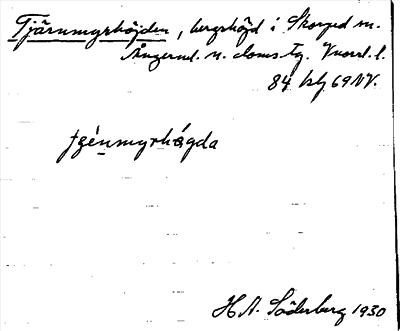 Tjärnmyrhöjden, bergshöjd i Skorped sn.
Ångerml. n. doms. tg. Vnorrl. l.
84 blg 69 NV.
tjénmyrhǻgda
H A. Söderberg 1930